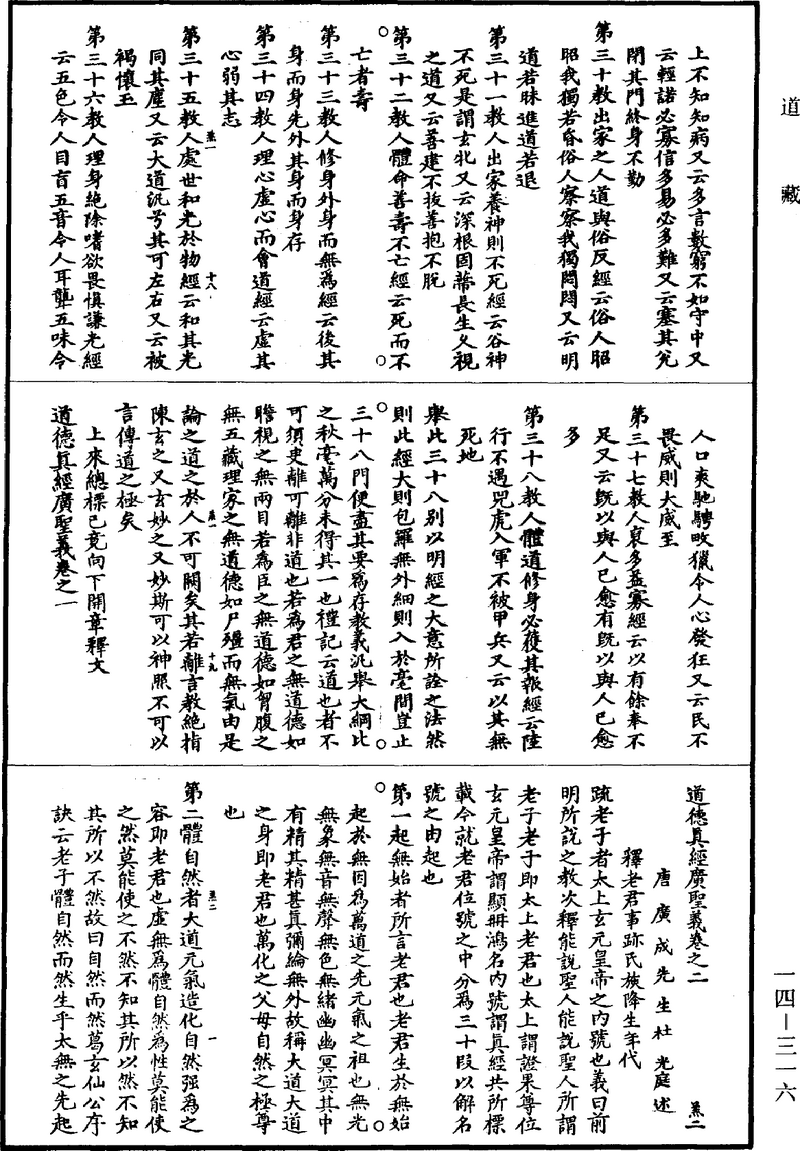 道藏
上不知知病又云多言數窮不如守中又
云輕諾必寡信多易必多難又云塞其兌
閉其門終身不勤
第三十教出家之人道與俗反經云俗人昭
昭我獨若昏俗人察察我獨悶悶又云明
道若昧進道若退
第三十一教人出家養神則不死經云谷神
不死是謂玄牝又云深根固蔕長生久視
之道又云善建不拔善抱不脫
第三十二教人體命善壽不亡經云死而不
亡者壽
第三十三教人修身外身而無為經云後其
身而身先外其身而身存
第三十四教人理心虛心而會道經云虛其
心弱其志
第三十五教人處世和光於物經云和其光
同其塵又云大道汎兮其可左右又云被
褐懷玉
第三十六教人理身絕除嗜欲畏慎謙光經
云五色令人目盲五音令人耳聾五味令
人口爽馳騁畋獵令人心發狂又云民不
畏威則大威至
第三十七教人裒多益寡經云以有餘奉不
足又云既以與人己愈有既以與人己愈
多
第三十八教人體道修身必獲其報經云陸
行不遇兕虎入軍不被甲兵又云以其無
死地
舉此三十八別以明經之大意所詮之法然
則此經大則包羅無外細則入於毫間豈止
三十八門便盡其要為存教義汎舉大綱比
之秋毫萬分未得其一也禮記云道也者不
可須臾離可離非道也若為君之無道德如
瞻視之無兩目若為臣之無道德如胷腹之
無五藏理家之無道德如尸殭而無氣由是
論之道之於人不可闕矣其若離言教絕指
陳玄之又玄妙之又妙斯可以神照不可以
言傳道之極矣
上來總標已竟向下開章釋文
道德眞經廣聖義卷之一
道德眞經廣聖義卷之二
羔二
唐廣成先生杜光庭述
釋老君事跡氏族降生年代
疏老子者太上玄元皇帝之內號也義曰前
明所說之教次釋能說聖人能說聖人所謂
老子老子即太上老君也太上謂證果尊位
玄元皇帝謂顯冊鴻名內號謂眞經共所標
載今就老君位號之中分為三十段以解名
號之由起也
第一起無始者所言老君也老君生於無始
起於無因為萬道之先元氣之祖也無光
無象無音無聲無色無緒幽幽冥冥其中
有精其精甚眞彌綸無外故稱大道大道
之身即老君也萬化之父母自然之極尊
也
第二體自然者大道元氣造化自然强為之
容即老君也虛無為體自然為性莫能使
之然莫能使之不然不知其所以然不知
其所以不然故曰自然而然葛玄仙公序
訣云老子體自然而然生乎太無之先起
一四—三一六